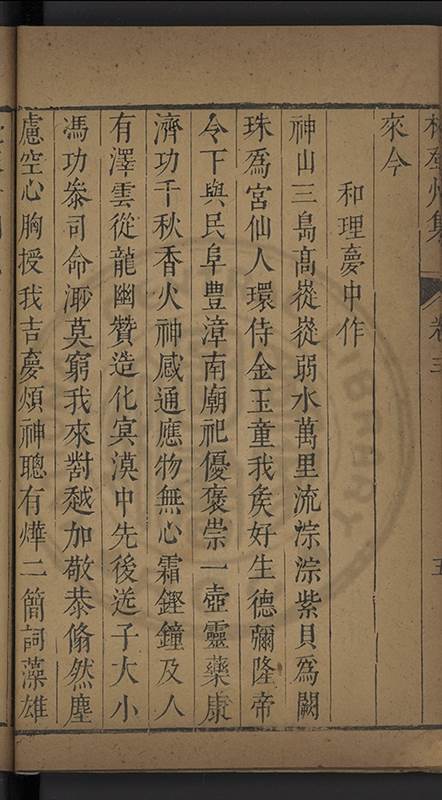 卷三 五
來今
和理夢中作
神山三島高嵸嵸弱水萬里流淙淙紫貝爲闕
珠爲宮仙人環侍金玉童我矦好生德彌隆帝
令下與民阜豊漳南廟祀優褒崇一壺靈藥康
濟功千秋香火神感通應物無心霜鏗鐘及人
有澤雲從龍幽贊造化冥漠中先後送子大小
馮功叅司命渺莫窮我來對越加敬恭翛然塵
慮空心胸授我吉夢煩神聰有燁二簡詞藻雄